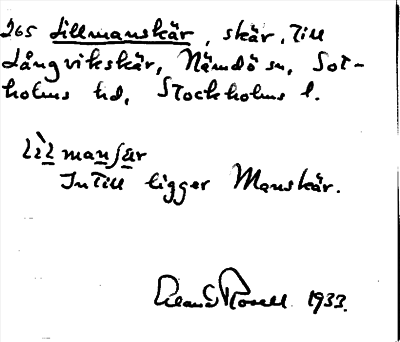 265 Lillmanskär, skär, Till
Långvikskär, Nämdö sn, Sot-
holms hd, Stockholms l.
Lìlmanʃær
Intill ligger Manskär.
Erland Rosell 1933.